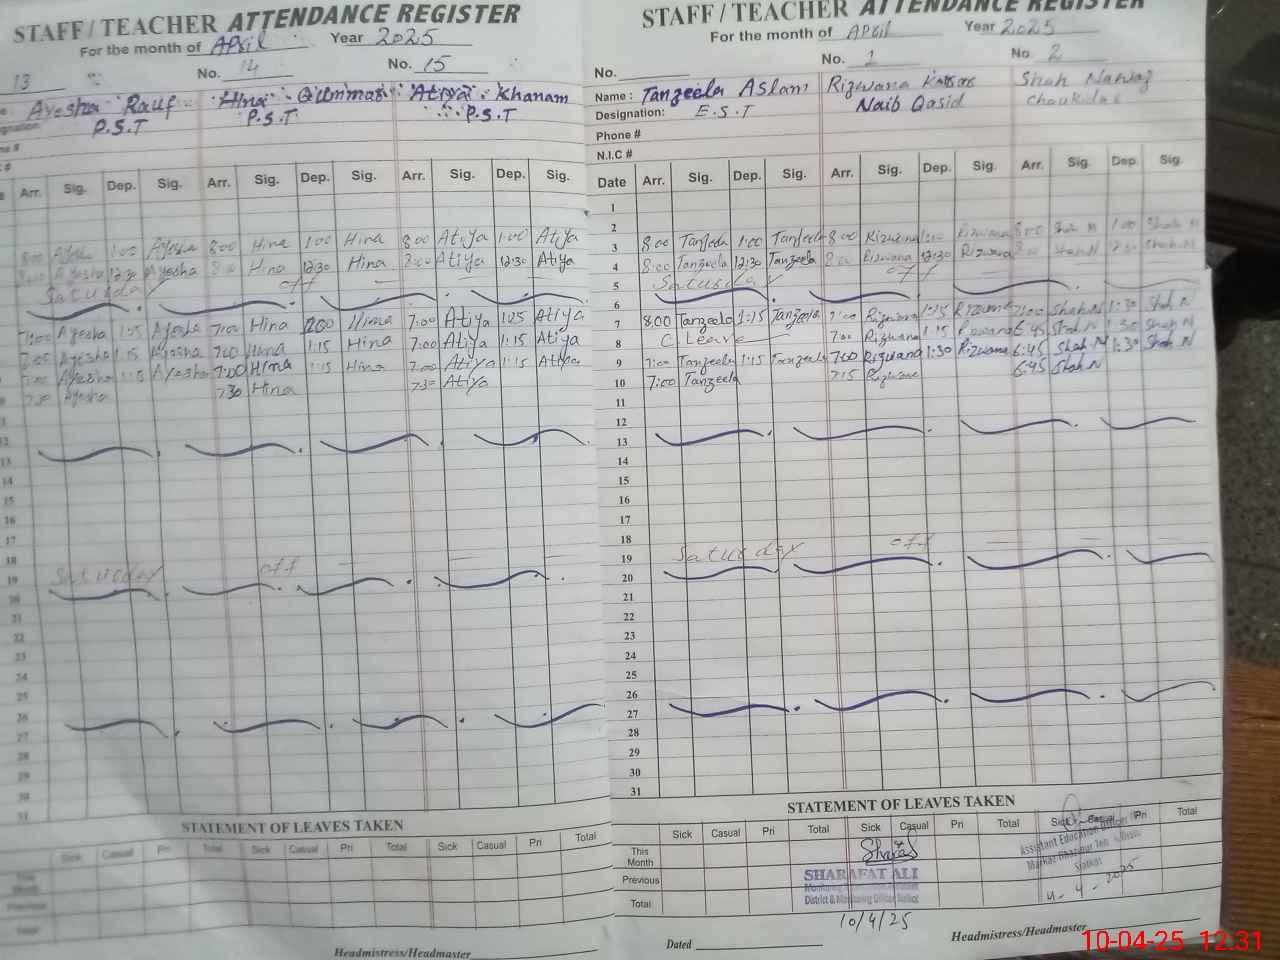 STAFF / TEACHER ATTENDANCE REGISTER
For the month of April Year 2025
13 No. 14 No. 15
Ayesha Rauf Hina Atiya Khanam
P.S.T P.S.T P.S.T
Arr. Sig. Dep. Sig. Arr. Sig. Dep. Sig. Arr. Sig. Dep. Sig.
8:00 1:00 Ayesha 8:00 Hina 1:00 Hina 8:00 Atiya 1:00 Atiya
Ayesha 12:30 Ayesha Hina 12:30 Hina 8:00 Atiya 12:30 Atiya
Saturday off
7:00 Ayesha 1:15 Ayesha 7:00 Hina Hina 7:00 Atiya 1:15 Atiya
7:00 Ayesha 1:15 Ayesha 7:00 Hina 1:15 Hina 7:00 Atiya 1:15 Atiya
7:00 Ayesha 1:15 Ayesha 7:00 Hina 1:15 Hina 7:00 Atiya 1:15 Atiya
7:30 Ayesha 7:30 Hina 7:30 Atiya
12
13
14
15
16
17
18
19 Saturday off
20
21
22
23
24
25
26
27
28
29
30
31
STATEMENT OF LEAVES TAKEN
Sick Casual Pri Total Sick Casual Pri Total Sick Casual Pri Total
Headmistress/Headmaster
STAFF / TEACHER ATTENDANCE REGISTER
For the month of April Year 2025
No. No. 1 No. 2
Name : Tanzeela Aslam Rizwana Kausar Shah Nawaz
Designation: E.S.T Naib Qasid Chaukidar
Phone #
N.I.C #
Date Arr. Sig. Dep. Sig. Arr. Sig. Dep. Sig. Arr. Sig. Dep. Sig.
1
2
3 8:00 Tanzeela 1:00 Tanzeela 8:00 Rizwana 1:00 Rizwana 8:00 Shah N 1:00 Shah N
4 8:00 Tanzeela 12:30 Tanzeela 8:00 Rizwana 12:30 Rizwana Shah N Shah N
5 Saturday off
6
7 8:00 Tanzeela 1:15 Tanzeela 7:00 Rizwana 1:15 Rizwana 7:00 Shah N 1:30 Shah N
8 C. Leave 7:00 Rizwana 1:15 Rizwana 6:45 Shah N 1:30 Shah N
9 7:00 Tanzeela 1:15 Tanzeela 7:00 Rizwana 1:30 Rizwana 6:45 Shah N 1:30 Shah N
10 7:00 Tanzeela 7:15 Rizwana 6:45 Shah N
11
12
13
14
15
16
17
18
19 Saturday off
20
21
22
23
24
25
26
27
28
29
30
31
STATEMENT OF LEAVES TAKEN
Sick Casual Pri Total Sick Casual Pri Total Sick Casual Pri Total
This Month
Previous
Total
SHARAFAT ALI
District & Monitoring Officer
10/4/25
Assistant Education Officer
Sialkot
Dated
Headmistress/Headmaster
10-04-25 12:31